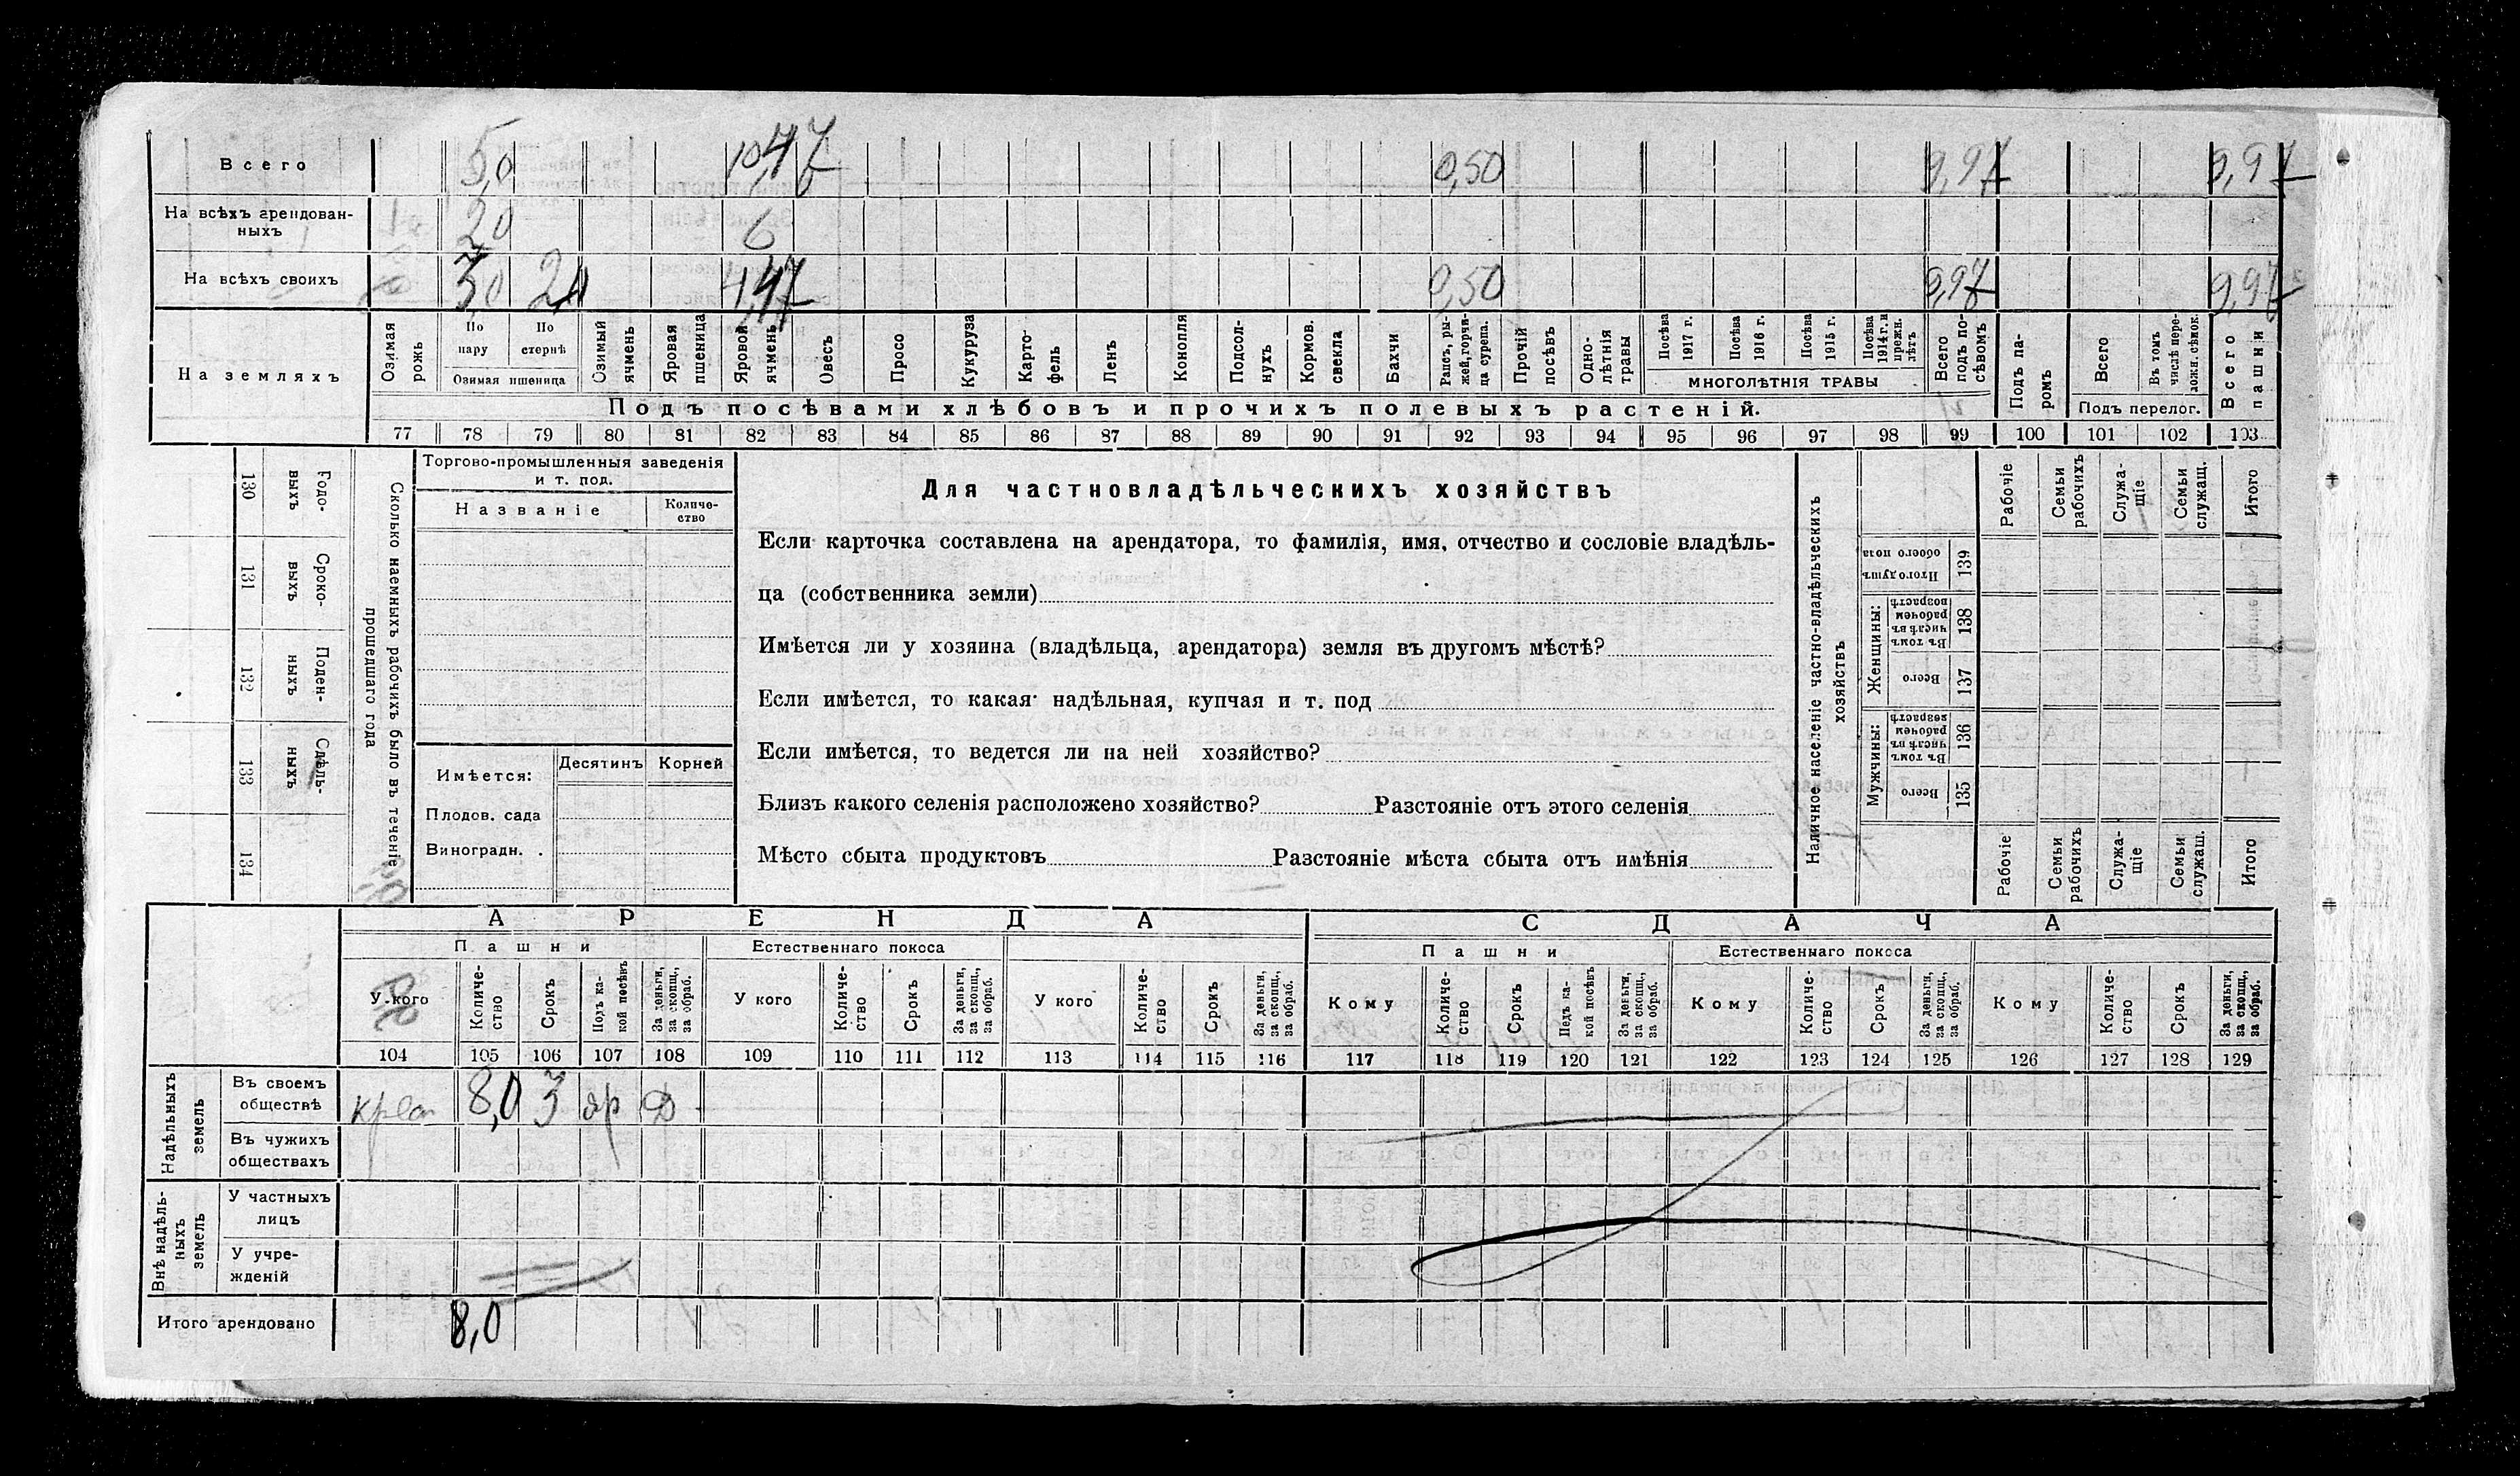 Всего 5,0 10,47 0,50 9,97 9,97
На всѣхъ арендованныхъ 20 6
На всѣхъ своихъ 3,0 2,0 4,47 0,50 9,97 9,97
На земляхъ
Озимая рожь
По пару
По стернѣ
Озимая пшеница
Озимый ячмень
Яровая пшеница
Яровой ячмень
Овесъ
Просо
Кукуруза
Картофель
Ленъ
Конопля
Подсолнухъ
Кормов. свекла
Бахчи
Рапсъ, рыжей, горчица сурепа.
Прочій посѣвъ
Однолѣтнія травы
Посѣва 1917 г.
Посѣва 1916 г.
Посѣва 1915 г.
Посѣва 1914 г. и прежн. лѣтъ
МНОГОЛѢТНІЯ ТРАВЫ
Всего подъ посѣвомъ
Подъ паромъ
Всего
Въ томъ числѣ переложн. сѣнок.
Подъ перелог.
Всего пашни
Подъ посѣвами хлѣбовъ и прочихъ полевыхъ растеній.
77 78 79 80 81 82 83 84 85 86 87 88 89 90 91 92 93 94 95 96 97 98 99 100 101 102 103
130 Годовыхъ
131 Сроковыхъ
132 Поденныхъ
133 Сдѣльныхъ
134
Сколько наемныхъ рабочихъ было въ теченіе
прошедшаго года
Торгово-промышленныя заведенія
и т. под.
Названіе
Количество
Имѣется: Десятинъ Корней
Плодов. сада
Виноградн. .
Для частновладѣльческихъ хозяйствъ
Если карточка составлена на арендатора, то фамилія, имя, отчество и сословіе владѣль-
ца (собственника земли)
Имѣется ли у хозяина (владѣльца, арендатора) земля въ другомъ мѣстѣ?
Если имѣется, то какая: надѣльная, купчая и т. под
Если имѣется, то ведется ли на ней хозяйство?
Близъ какого селенія расположено хозяйство? Разстояніе отъ этого селенія
Мѣсто сбыта продуктовъ Разстояніе мѣста сбыта отъ имѣнія
Наличное населеніе частно-владѣльческихъ
хозяйствъ
Рабочіе
Семьи рабочихъ
Служащіе
Семьи служащ.
Итого
Итого душъ обоего пола 139
Женщины:
Въ томъ числѣ въ рабочемъ возрастѣ 138
Всего 137
Мужчины:
Въ томъ числѣ въ рабочемъ возрастѣ 136
Всего 135
Рабочіе
Семьи рабочихъ
Служащіе
Семьи служащ.
Итого
АРЕНДА
СДАЧА
Пашни
Естественнаго покоса
Пашни
Естественнаго покоса
У кого
Количество
Срокъ
Подъ какой посѣвъ
За деньги, за скопщ., за обраб.
У кого
Количество
Срокъ
За деньги, за скопщ., за обраб.
У кого
Количество
Срокъ
За деньги, за скопщ., за обраб.
Кому
Количество
Срокъ
Подъ какой посѣвъ
За деньги, за скопщ., за обраб.
Кому
Количество
Срокъ
За деньги, за скопщ., за обраб.
Кому
Количество
Срокъ
За деньги, за скопщ., за обраб.
104 105 106 107 108 109 110 111 112 113 114 115 116 117 118 119 120 121 122 123 124 125 126 127 128 129
Надѣльныхъ земель
Въ своемъ обществѣ 8,0 3 яр Д
Въ чужихъ обществахъ
Внѣ надѣльныхъ земель
У частныхъ лицъ
У учрежденій
Итого арендовано 8,0